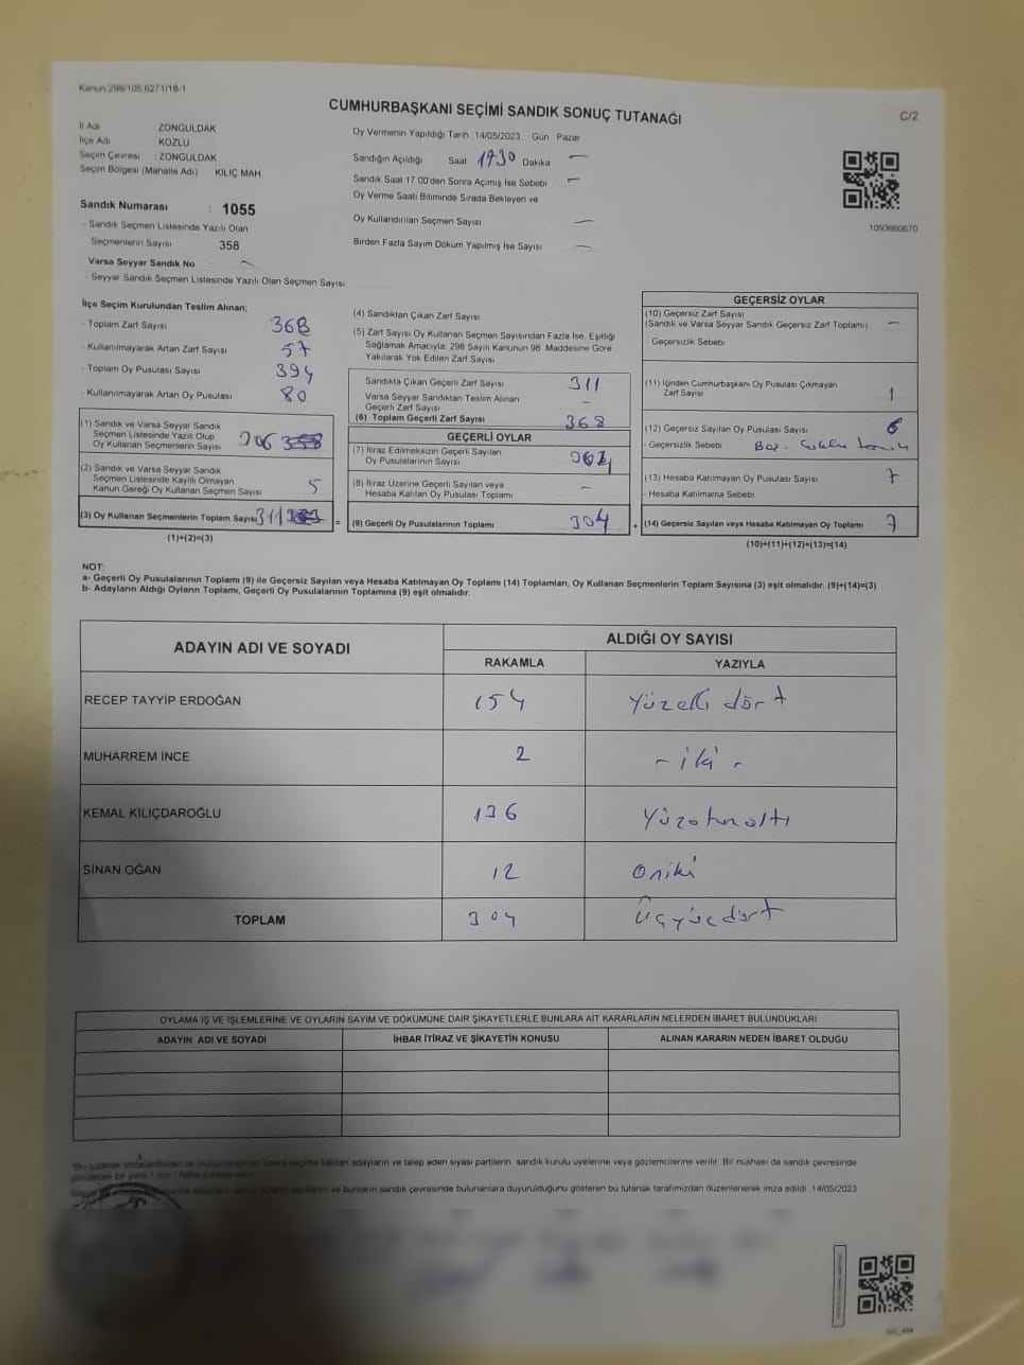 Kanun 298/105,6271/18-1
CUMHURBAŞKANI SEÇİMİ SANDIK SONUÇ TUTANAĞI
C/2
İl Adı : ZONGULDAK
İlçe Adı : KOZLU
Seçim Çevresi : ZONGULDAK
Seçim Bölgesi (Mahalle Adı) KILIÇ MAH.
Sandık Numarası : 1055
- Sandık Seçmen Listesinde Yazılı Olan
Seçmenlerin Sayısı 358
Varsa Seyyar Sandık No -
- Seyyar Sandık Seçmen Listesinde Yazılı Olan Seçmen Sayısı
Oy Vermenin Yapıldığı Tarih 14/05/2023 Gün Pazar
Sandığın Açıldığı Saat 1730 Dakika -
Sandık Saat 17.00'den Sonra Açılmış İse Sebebi -
Oy Verme Saati Bitiminde Sırada Bekleyen ve
Oy Kullandırılan Seçmen Sayısı -
Birden Fazla Sayım Döküm Yapılmış İse Sayısı -
1050660670
İlçe Seçim Kurulundan Teslim Alınan;
- Toplam Zarf Sayısı 368
- Kullanılmayarak Artan Zarf Sayısı 57
- Toplam Oy Pusulası Sayısı 394
- Kullanılmayarak Artan Oy Pusulası 80
(1) Sandık ve Varsa Seyyar Sandık
Seçmen Listesinde Yazılı Olup
Oy Kullanan Seçmenlerin Sayısı 306
(2) Sandık ve Varsa Seyyar Sandık
Seçmen Listesinde Kayıtlı Olmayan
Kanun Gereği Oy Kullanan Seçmen Sayısı 5
(3) Oy Kullanan Seçmenlerin Toplam Sayısı 311
(1)+(2)=(3)
=
(4) Sandıktan Çıkan Zarf Sayısı
(5) Zarf Sayısı Oy Kullanan Seçmen Sayısından Fazla İse, Eşitliği
Sağlamak Amacıyla; 298 Sayılı Kanunun 98. Maddesine Göre
Yakılarak Yok Edilen Zarf Sayısı
Sandıkta Çıkan Geçerli Zarf Sayısı 311
Varsa Seyyar Sandıktan Teslim Alınan
Geçerli Zarf Sayısı -
(6) Toplam Geçerli Zarf Sayısı 368
GEÇERLİ OYLAR
(7) İtiraz Edilmeksizin Geçerli Sayılan
Oy Pusulasının Sayısı
(8) İtiraz Üzerine Geçerli Sayılan veya
Hesaba Katılan Oy Pusulası Toplamı -
(9) Geçerli Oy Pusulalarının Toplamı 304
+
GEÇERSİZ OYLAR
(10) Geçersiz Zarf Sayısı
(Sandık ve Varsa Seyyar Sandık Geçersiz Zarf Toplamı) -
Geçersizlik Sebebi
(11) İçinden Cumhurbaşkanı Oy Pusulası Çıkmayan
Zarf Sayısı 1
(12) Geçersiz Sayılan Oy Pusulası Sayısı 6
- Geçersizlik Sebebi
(13) Hesaba Katılmayan Oy Pusulası Sayısı 7
- Hesaba Katılmama Sebebi
(14) Geçersiz Sayılan veya Hesaba Katılmayan Oy Toplamı 7
(10)+(11)+(12)+(13)=(14)
NOT:
a- Geçerli Oy Pusulalarının Toplamı (9) ile Geçersiz Sayılan veya Hesaba Katılmayan Oy Toplamı (14) Toplamları, Oy Kullanan Seçmenlerin Toplam Sayısına (3) eşit olmalıdır. (9)+(14)=(3)
b- Adayların Aldığı Oyların Toplamı, Geçerli Oy Pusulalarının Toplamına (9) eşit olmalıdır.
ADAYIN ADI VE SOYADI
ALDIĞI OY SAYISI
RAKAMLA YAZIYLA
RECEP TAYYİP ERDOĞAN 154 Yüzelli dört
MUHARREM İNCE 2 - iki -
KEMAL KILIÇDAROĞLU 136 Yüzotuzaltı
SİNAN OĞAN 12 Oniki
TOPLAM 304 Üçyüzdört
OYLAMA İŞ VE İŞLEMLERİNE VE OYLARIN SAYIM VE DÖKÜMÜNE DAİR ŞİKAYETLERLE BUNLARA AİT KARARLARIN NELERDEN İBARET BULUNDUKLARI
ADAYIN ADI VE SOYADI İHBAR İTİRAZ VE ŞİKAYETİN KONUSU ALINAN KARARIN NEDEN İBARET OLDUĞU
adayların ve talep eden siyasi partilerin, sandık kurulu üyelerine veya gözlemcilerine verilir. Bir nüshası da sandık çevresinde
ve bunların sandık çevresinde bulunanlara duyurulduğunu gösteren bu tutanak tarafımızdan düzenlenerek imza edildi. 14/05/2023